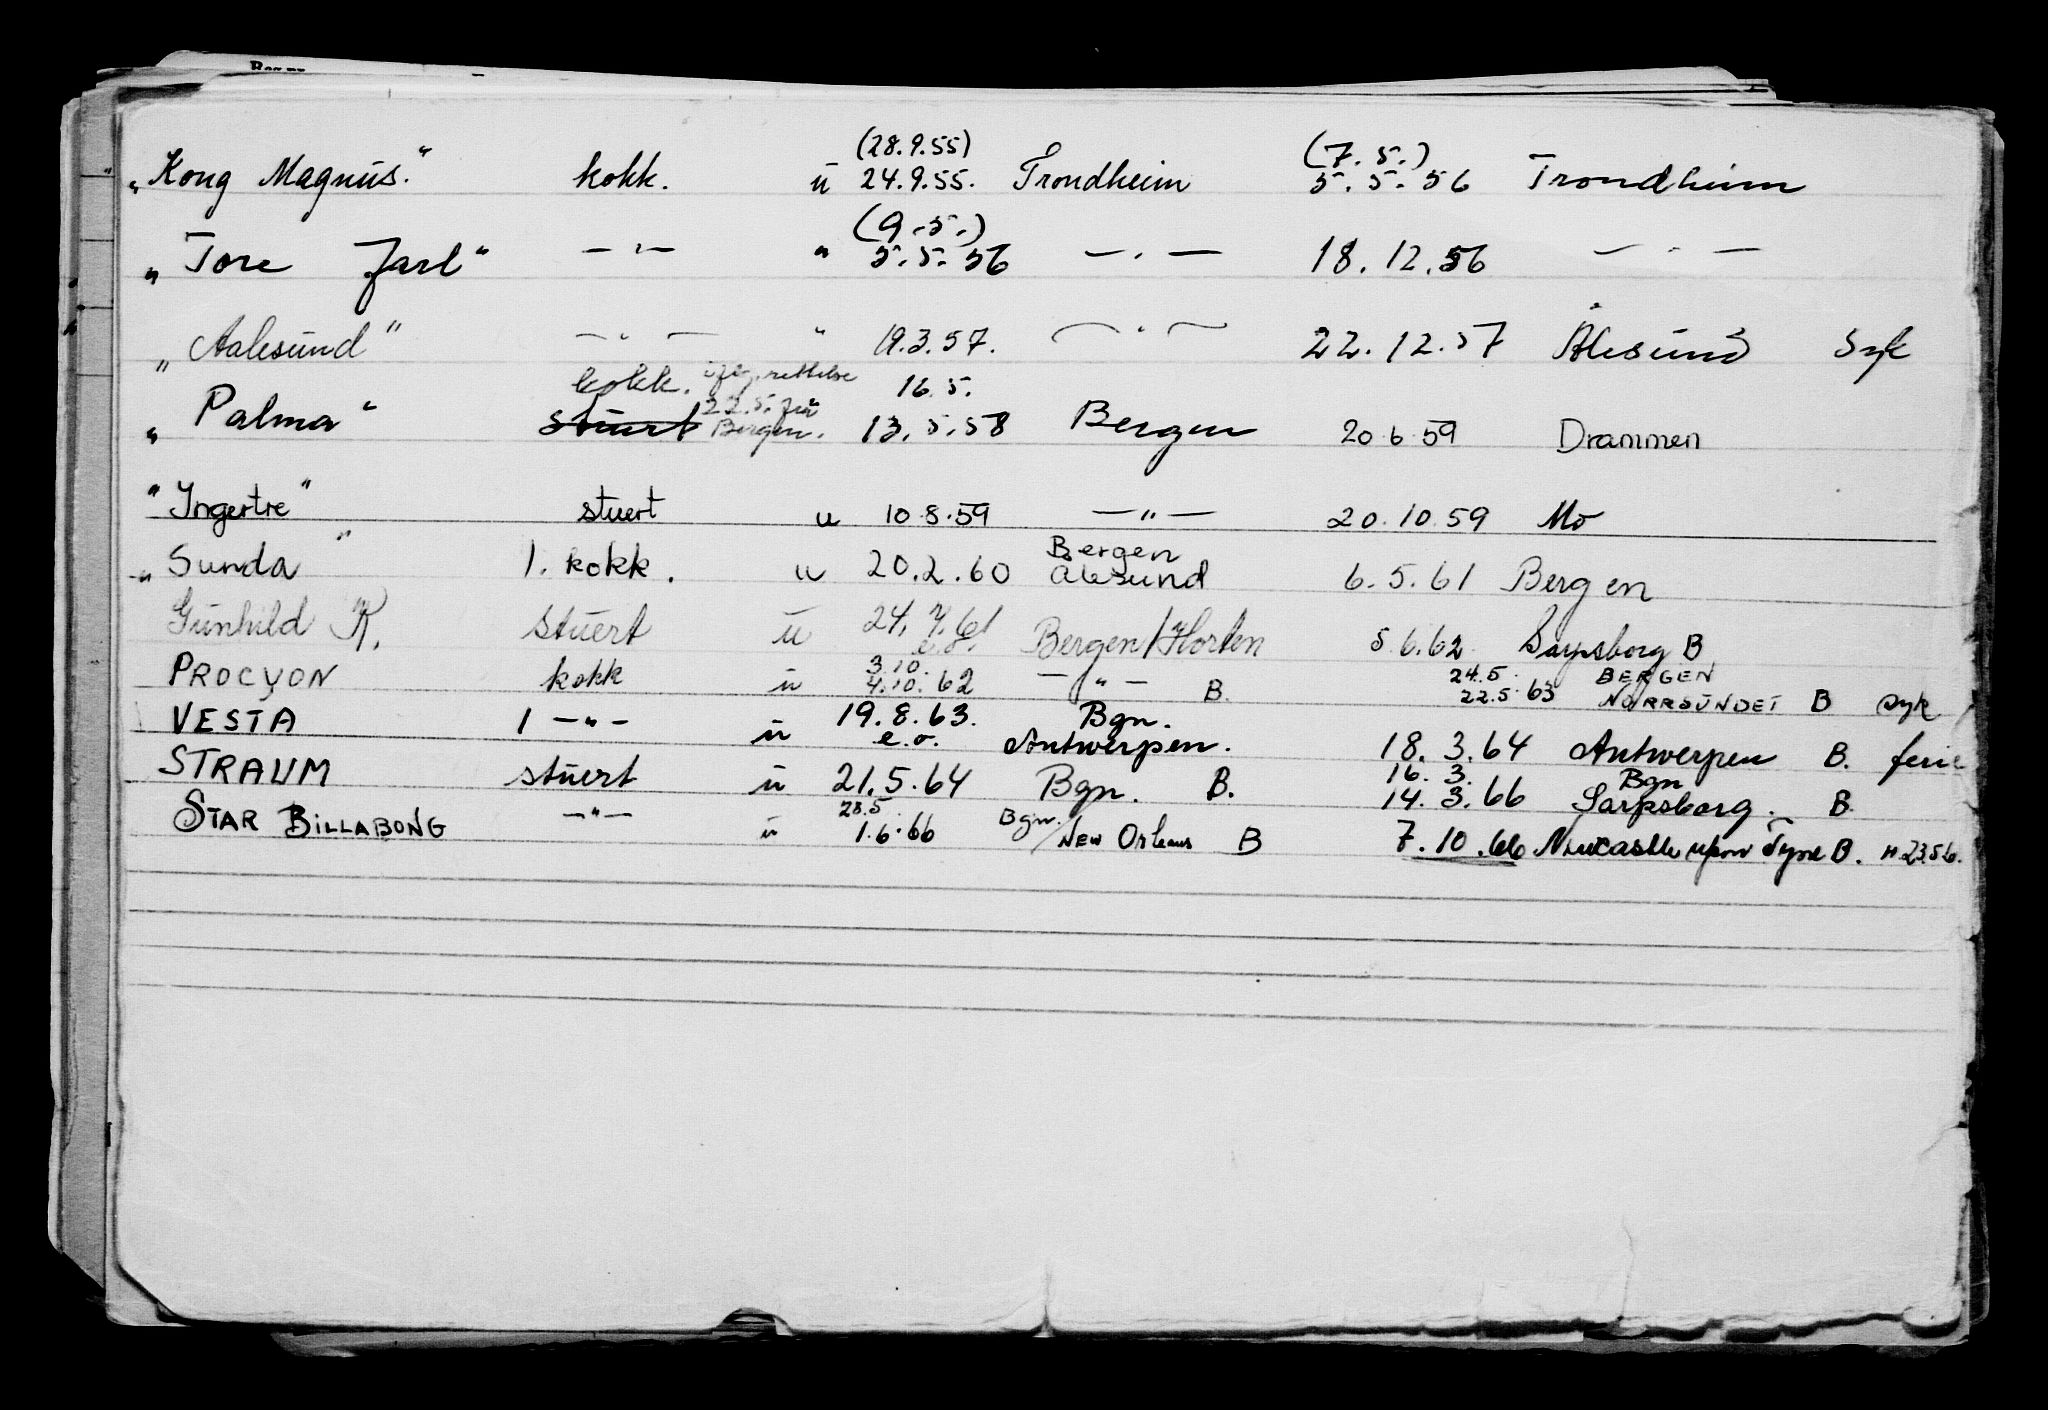 (28.9.55) (7.5.)
„Kong Magnus." kokk. u 24.9.55. Trondheim 5.5.56 Trondheim
(9.5.)
„Tore Jarl" — " — " 5.5.56 — " — 18.12.56 — " —
„Aalesund" — " — " 19.3.57. — " — 22.12.57 Ålesund Syk
kokk. rettelse 16.5.
„Palma" stuert 22.5. fra Bergen. 13.5.58 Bergen 20.6.59 Drammen
"Ingertre" stuert u 10.8.59 — " — 20.10.59 Mo
Bergen
„Sunda" 1. kokk. u 20.2.60 Ålesund 6.5.61 Bergen
Gunhild K. stuert u 24.7.61 Bergen/Horten 5.6.62 Sarpsborg B
e.o. 3.10. 24.5. BERGEN
PROCYON kokk u 4.10.62 — " — B. 22.5.63 NORRSUNDET B syk
VESTA 1 — " — u 19.8.63. Bgn.
e.o. Antwerpen. 18.3.64 Antwerpen B. ferie
16.3. Bgn
STRAUM stuert u 21.5.64 Bgn. B. 14.3.66 Sarpsborg. B.
28.5. Bgn.
STAR BILLABONG — " — u 1.6.66 /New Orleans B 7.10.66 Newcastle upon Tyne B.